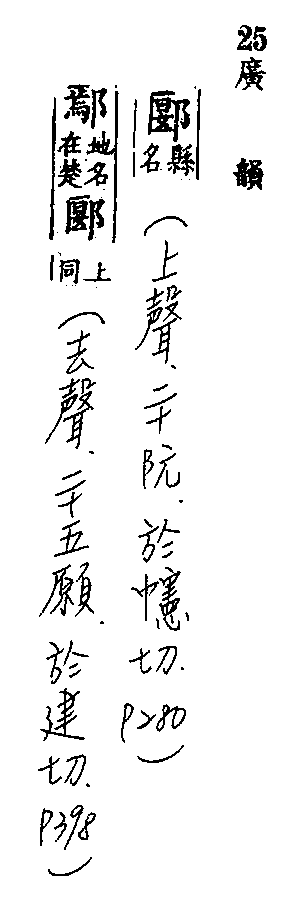 25廣韻
郾縣名(上聲.二十阮.於幰切.P280)
鄢地名在楚郾上同(去聲.二十五願.於建切.P398)